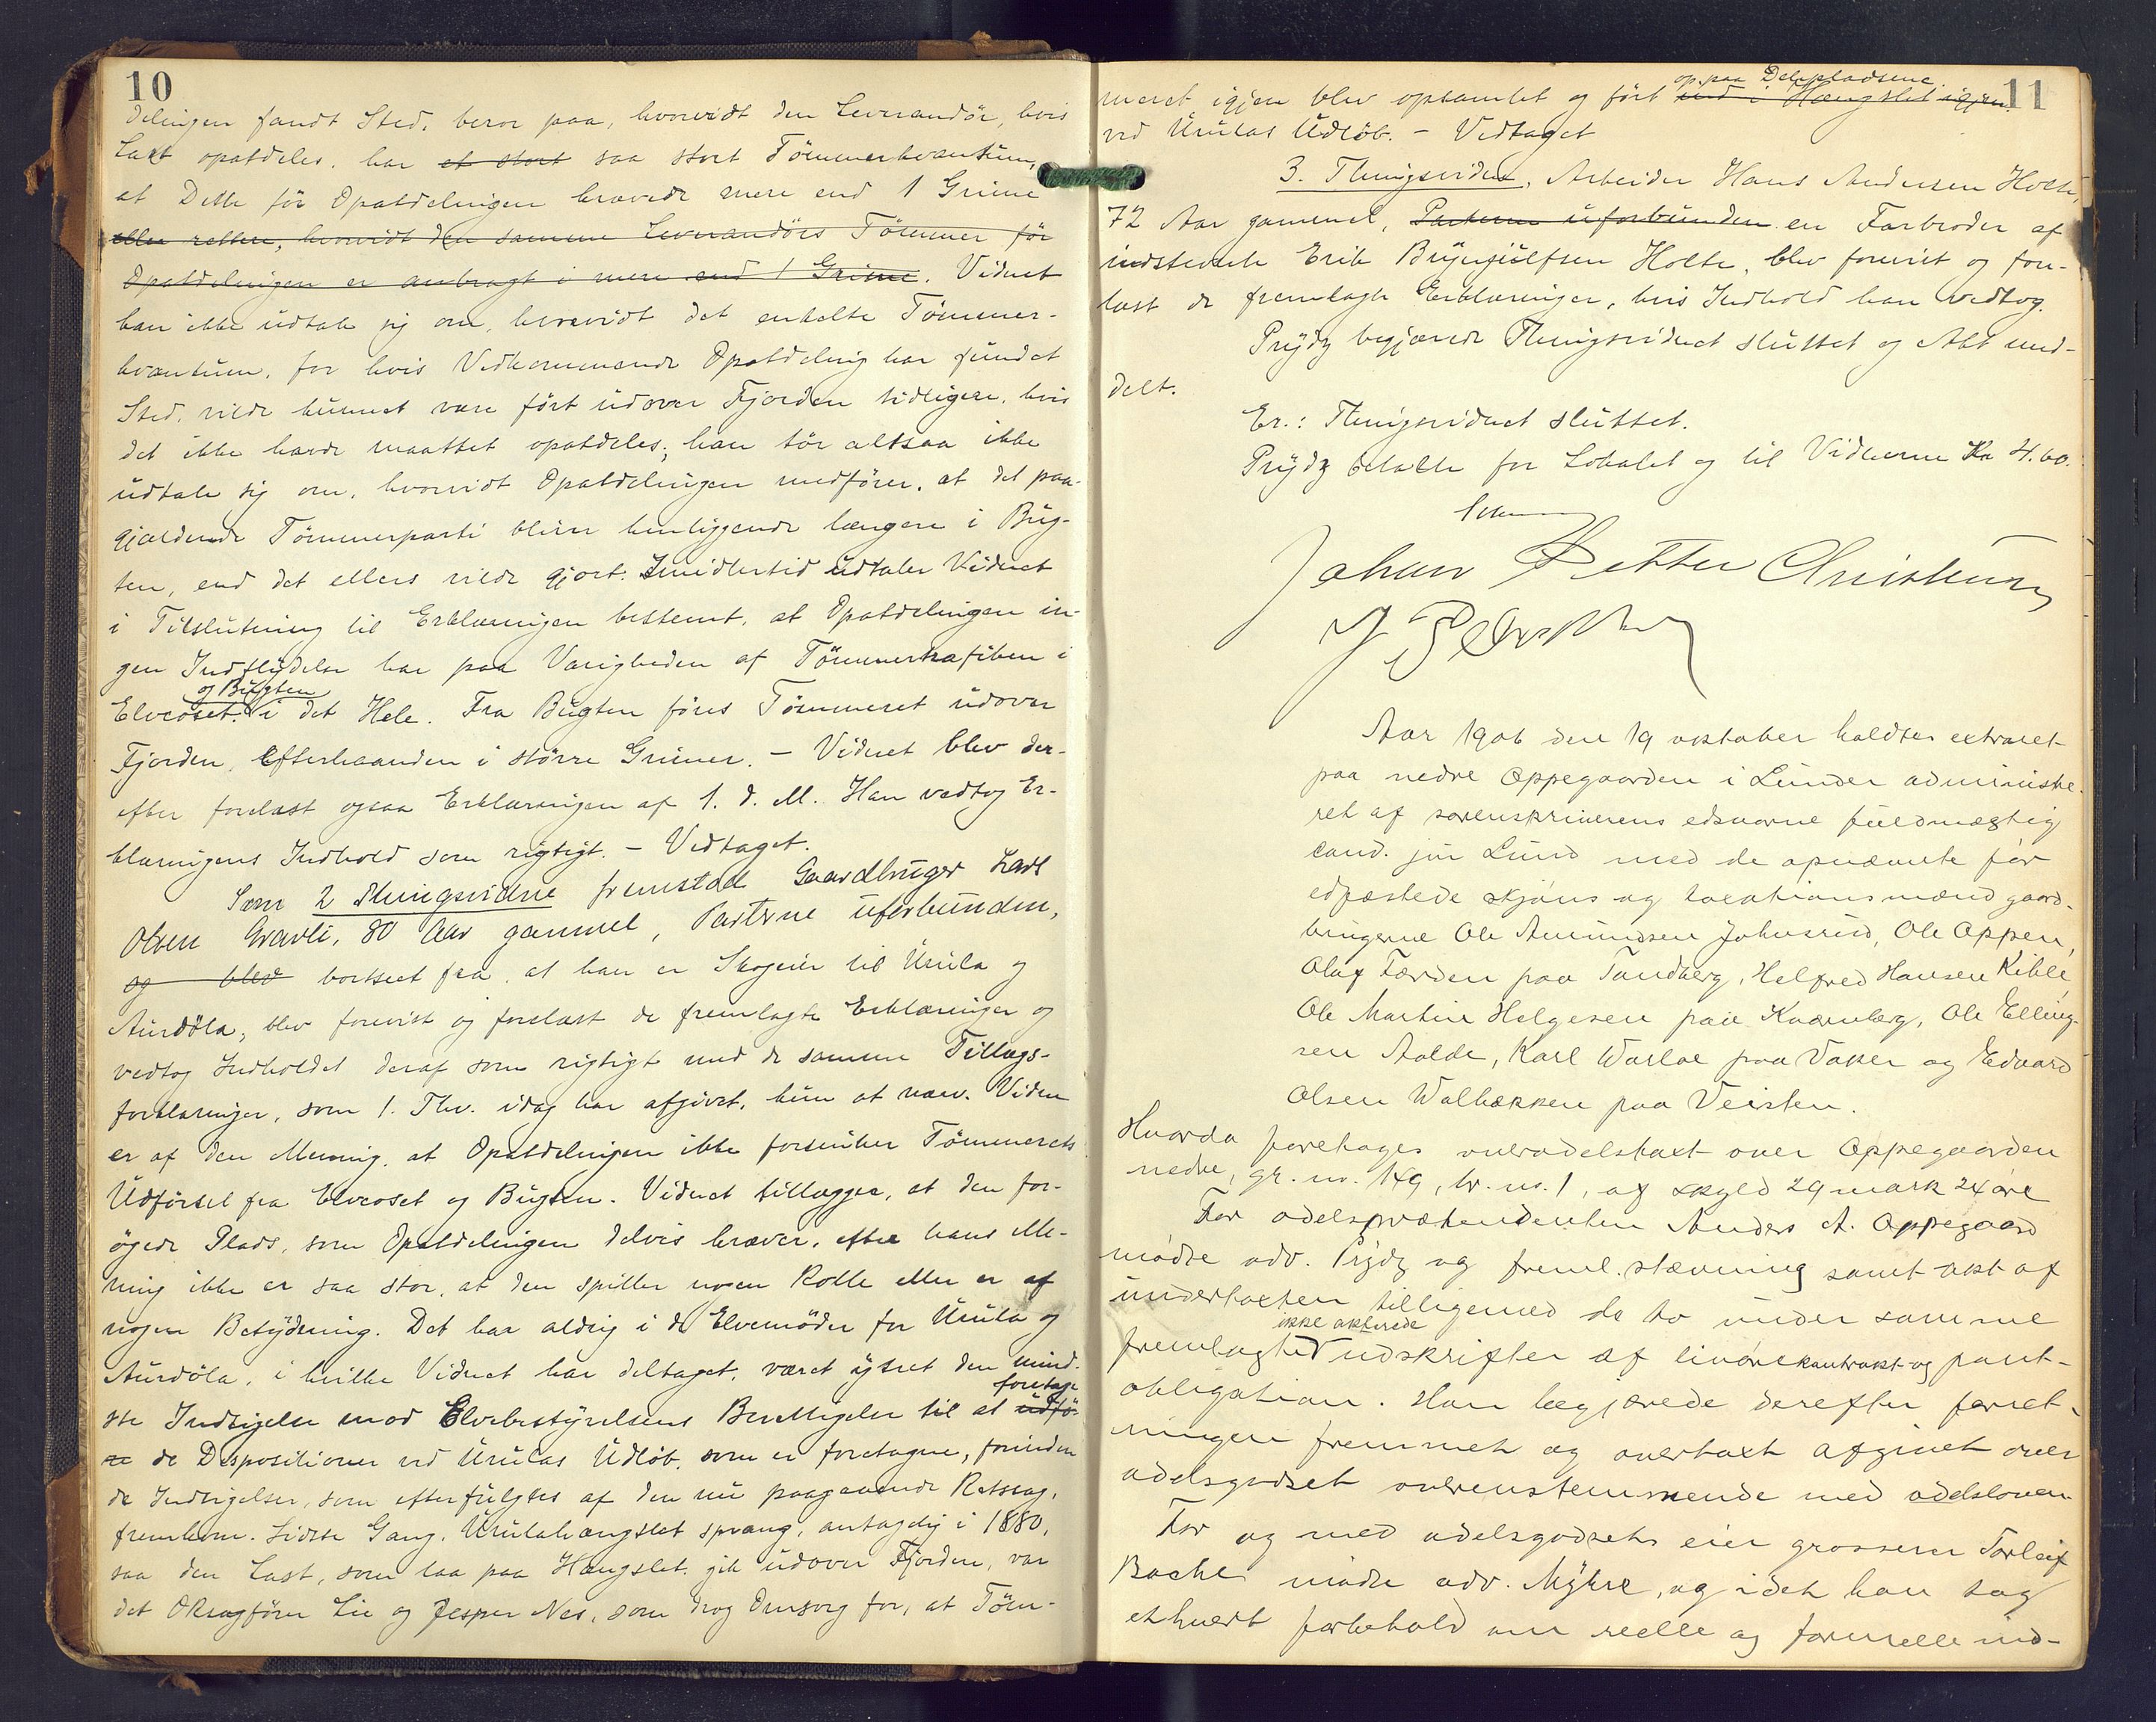 10
delingen fandt Sted, beror paa, hvorvidt den Leverandör, hvis
Last opatdeles, har et stort saa stort Tömmerkvantum,
at Dette för Opatdelingen krævede mere end 1 Grime
eller rettere, hvorvidt den samme Leverandörs Tömmer för
Opatdelingen er anbragt i mere end 1 Grime. Vidnet
kan ikke udtale sig om, hvorvidt det enkelte Tömmer-
kvantum, for hvis Vedkommende Opatdeling har fundet
Sted, vilde kunnet være fört udover Fjorden tidligere, hvis
det ikke havde maattet opatdeles; han tör altsaa ikke
udtale sig om, hvorvidt Opatdelingen medförer, at det paa-
gjældende Tömmerparti bliver henliggende længere i Bug-
ten, end det ellers vilde gjort. Imidlertid udtaler Vidnet
i Tilslutning til Erklæringen bestemt, at Opatdelingen in-
gen Indflydelse har paa Varigheden af Tömmertrafiken i
og Bugten
Elveoset i det Hele. Fra Bugten föres Tömmeret udover
Fjorden efterhaanden i större Grimer. – Vidnet blev der-
efter forelæst ogsaa Erklæringen af 1. d. M. Han vedtog Er-
klæringens Indhold som rigtigt. – Vedtaget.
Som 2 Thingsvidne fremstod Gaardbruger Lars
Olsen Gravli, 80 Aar gammel, Parterne uforbunden,
og blev bortseet fra, at han er Skogeier til Urula og
Aurdöla, blev forevist og forelæst de fremlagte Erklæringer og
vedtog Indholdet deraf som rigtigt med de samme Tillægs-
forklaringer, som 1. Thv. idag har afgivet, kun at nærv. Vidne
er af den Mening, at Opatdelingen ikke forsinker Tömmerets
Udförsel fra Elveoset og Bugten. Vidnet tillægger, at den for-
ögede Plads, som Opatdelingen delvis kræver, efter hans Me-
ning ikke er saa stor, at den spiller nogen Rolle eller er af
nogen Betydning. Det har aldrig i de Elvemöder for Urula og
Aurdöla, i hvilke Vidnet har deltaget, været ytret den mind-
foretage
ste Indsigelse mod Elvebestyrelsens Berettigelse til at udfö-
re de Dispositioner ved Urulas Udlöb, som er foretagne, forinden
de Indsigelser, som efterfulgtes af den nu paagaaende Retssag,
fremkom. Sidste Gang, Urulahængslet sprang, antagelig i 1880,
saa den Last, som laa paa Hængslet, gik udover Fjorden, var
det Oksagförer Lie og Jesper Nes, som drog Omsorg for, at Töm-
11
op paa Delepladsene
meret igjen blev opsamlet og fört ind i Hængslet igjen
ved Urulas Udlöb. – Vedtaget
3. Thingsvidne, Arbeider Hans Andersen Holte,
72 Aar gammel, Parterne uforbunden en Farbroder af
indstevnte Erik Brynjulfsen Holte, blev forevist og fore-
læst de fremlagte Erklæringer, hvis Indhold han vedtog.
Prydz begjærede Thingsvidnet sluttet og Akt med-
delt.
Er.: Thingsvidnet sluttet.
Prydz betalte for Lokalet og til Vidnerne Kr 4.60.
Johan Petter Christensen
Aar 1906 den 19 oktober holdtes extraret
paa nedre Oppegaarden i Lunder administre-
ret af sorenskriverens edsvorne fuldmægtig
cand. jur Lund med de opnævnte för
edfæstede skjöns og taxationsmænd gaard-
brugerne Ole Amundsen Johnsrud, Ole Oppen,
Olaf Færden paa Tandberg, Helfred Hansen Kihle,
Ole Martin Helgesen paa Kværnberg, Ole Elling-
sen Aalde, Karl Warloe paa Vaker og Edvard
Olsen Walbækken paa Veisten.
Hvorda foretages overodelstaxt over Oppegaarden
nedre, gr. no. 149, br. no. 1, af skyld 29 mark 24 öre
For odelsprætendenten Anders A. Oppegaard
mödte adv. Prydz og freml. stævning samt akt af
undertaxten tilligemed de to under samme
ikke akterede
fremlagte udskrifter af livörekontrakt og pant-
obligation. Han begjærede derefter forret-
ningen fremmet og overtaxt afgivet over
odelsgodset overensstemmende med odelsloven.
For og med odelsgodsets eier grosserer Torleif
Bache mödte adv. Mykre, og idet han tog
ethvert forbehold om reelle og formelle ind-